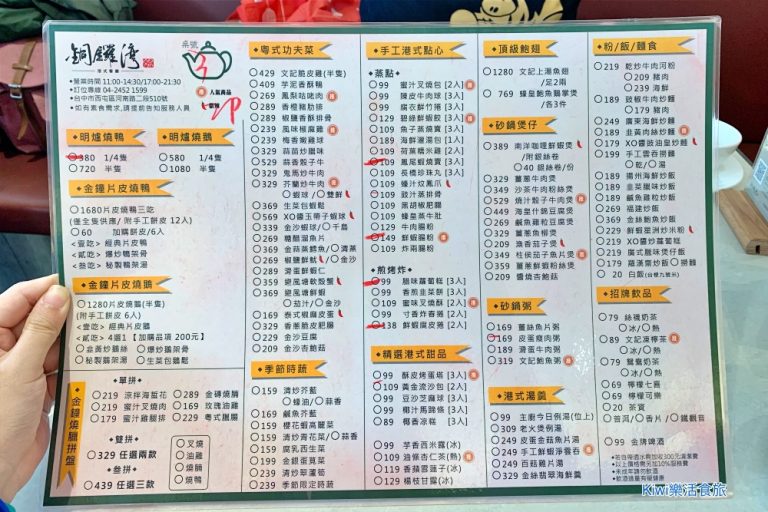 銅鑼灣
港式餐廳
桌號
3
叩
●營業時間 11:00-14:30/17:00-21:30
●訂位專線 04-2452 1599
●台中市西屯區河南路二段510號
●如有素食需求,請提前告知服務人員
人氣商品
明爐燒鴨
380 1/4隻
720 半隻
明爐燒鵝
580 1/4隻
1080 半隻
金鐘片皮燒鴨
1680片皮燒鴨三吃
(僅全隻供應/ 附手工餅皮 12人)
60 加購餅皮/6入
<壹吃> 經典片皮鴨
<貳吃> 爆炒鴨架骨
<叁吃> 秘製鴨架湯
金鐘片皮燒鵝
1280片皮燒鵝(半隻)
(附手工餅皮 6人)
<壹吃> 經典片皮鵝
<貳吃> 4選1【加購品項 200元】
韭黃炒鵝絲 爆炒鵝架骨
秘製鵝架湯 生菜包鵝鬆
金鐘燒臘拼盤
單拼
219 涼拌海蜇花
219 蜜汁叉燒肉
179 蜜汁雞腿排
289 金磚燒腩
169 玫瑰油雞
229 粵式燒鴨
雙拼
329 任選兩款
叁拼
439 任選三款
叉燒
油雞
燒腩
燒鴨
粵式功夫菜
429 文記脆皮雞(半隻)
409 芋泥香酥鴨
269 鳳梨咕咾肉
289 香橙豬肋排
289 椒鹽香酥骨
239 風味椒麻雞
239 梅香嫩雞
329 蒜苗炒臘味
529 蒜香骰子牛
329 鬼馬炒牛肉
329 芥蘭炒牛肉
蝦球/雙鮮
369 生菜包蝦鬆
569 XO醬玉帶子蝦球
339 金沙蝦球/千島
269 糖醋溜魚片
369 金菇蒸鱈魚/清蒸
269 椒鹽鮮魷/金沙
289 滑蛋鮮蝦仁
359 避風塘軟殼蟹
369 避風塘鮮蝦
茄汁/金沙
169 泰式椒麻皮蛋
329 香蔥脆皮肥腸
229 金沙豆腐
209 金沙杏鮑菇
季節時蔬
159 清炒芥藍
蠔油/蒜香
169 鹹魚芥藍
159 櫻花蝦高麗菜
159 清炒青花菜/蒜香
159 腐乳西生菜
199 金銀蛋莧菜
239 清炒翠蘆筍
239 季節限定時蔬
手工港式點心
蒸點
99 蜜汁叉燒包【2入】
99 陳皮牛肉球【3入】
99 腐衣鮮竹捲【3入】
129 碧綠鮮蝦餃【3入】
109 魚子蒸燒賣【3入】
189 海鮮灌湯包【1入】
109 荷葉糯米雞【2入】
109 鳳尾蝦燒賣【3入】
109 長橋炒珠丸【3入】
109 蠔汁炆鳳爪
109 豉汁蒸排骨
109 黑胡椒肥腸
109 蠔皇蒸牛肚
129 牛肉腸粉
149 鮮蝦腸粉
109 炸兩腸粉
煎烤炸
99 臘味蘿蔔糕【3入】
99 香煎韭菜餅【3入】
109 蜜味叉燒酥【2入】
99 寸香炸春捲【3入】
138 鮮蝦腐皮捲【2入】
精選港式甜品
99 酥皮烤蛋塔【3入】
109 黃金流沙包【2入】
99 豆沙芝麻球【3入】
99 椰汁馬蹄條【3入】
89 椰香冰糕【3入】
99 芋香西米露(冰)
109 油條杏仁茶(熱)
119 香蘋雪蓮子(熱)
129 楊枝甘露(冰)
頂級鮑翅
1280 文記上湯魚翅
/足2兩
769 蠔皇鮑魚鵝掌煲
/各3件
砂鍋煲仔
389 南洋咖哩鮮蝦煲
/附銀絲卷
40 銀絲卷/份
329 薑蔥牛肉煲
349 沙茶牛肉粉絲煲
529 燒汁骰子牛肉煲
449 海皇什錦豆腐煲
269 鹹魚雞粒豆腐煲
329 薑蔥魚柳煲
209 魚香茄子煲
349 柱侯茄子魚片煲
359 薑蔥鮮蝦粉絲煲
209 醬燒杏鮑菇
砂鍋粥
169 薑絲魚片粥
169 皮蛋瘦肉粥
189 滑蛋牛肉粥
319 文記鮑魚粥
港式湯羹
99 主廚今日例湯(位上)
309 老火煲例湯
249 皮蛋金菇魚片湯
249 手工鮮蝦淨雲吞
249 百菇雞片湯
329 金絲翡翠海鮮羹
粉/飯/麵食
219 乾炒牛肉河粉
209 豬肉
239 海鮮
189 豉椒牛肉炒麵
179 豬肉
249 廣東海鮮炒麵
189 韭黃肉絲炒麵
179 XO醬豉油皇炒麵
199 手工雲吞撈麵
乾/湯
189 揚州海鮮炒飯
189 韭菜臘味炒飯
189 鹹魚雞粒炒飯
269 福建炒飯
369 金絲鮑魚炒飯
229 鮮蝦星洲炒米粉
219 XO醬炒蘿蔔糕
219 廣式臘味煲仔飯
179 羅漢齋炒飯/撈麵
20 白飯(台梗九號米)
招牌飲品
79 絲襪奶茶
冰/熱
89 文記凍檸茶
冰/熱
79 鴛鴦奶茶
冰/熱
69 檸檬七喜
69 檸檬可樂
20 茶資
普洱/香片/鐵觀音
99 金牌啤酒
●若自帶酒水需加收300元清潔費
●以上價格需另加10%服務費
●未成年請勿飲酒
●飲酒過量有礙健康
Kiwi樂活食旅